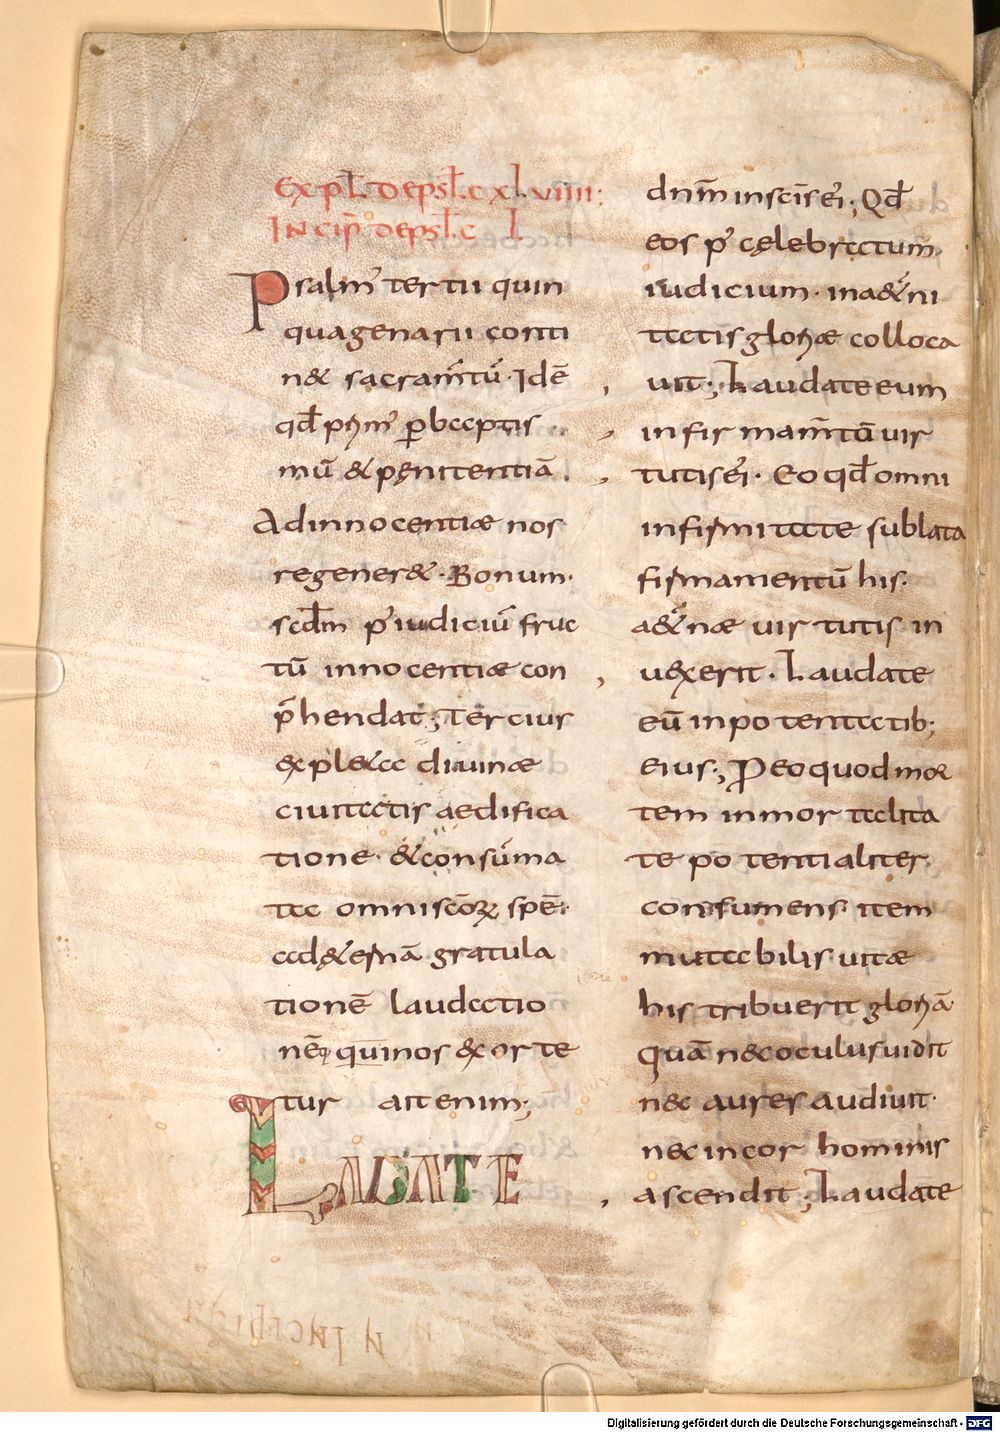 Expł. de psł. cxlviiii:
Incip̄ de psł. c l.
Psalm' tertii quin
quagenarii conti
n& sacram̄tū. Idē
qđ prim' p̱ baptis
mū & pęnitentiā.
Ad innocentiæ nos
regener&. Bonum.
scđm p' iudiciū fruc
tū innocentiæ con
p̄hendat; Tercius
expl&a diuinæ
ciuitatis aedifica
tione. & consūma
ta omnis cōrꝝ spē.
ad &ernā gratula
tionē laudatio
nē quinos exorte
tur ait enim;
LAUDATE
dn̄m in sc̄is ei'; Qđ
eos p' cęlebratum.
iudicium. in a&'ni
tatis gloriæ colloca
uit; Laudate eum
in firmam̄tū uir
tutis ei'. Eo qđ omni
infirmitate sublata
firmamentū his.
a&'næ uirtutis in
uexerit. Laudate
eū in potentatib;
eius; Pro eo quod mor
tem inmortalita
te potentialiter.
consumens. item
mutabilis uitæ
his tribuerit gloriā
quā n&c oculus uidit
n&c aures audiuit.
n&c in cor hominis
ascendit; Laudate
Digitalisierung gefördert durch die Deutsche Forschungsgemeinschaft - DFG